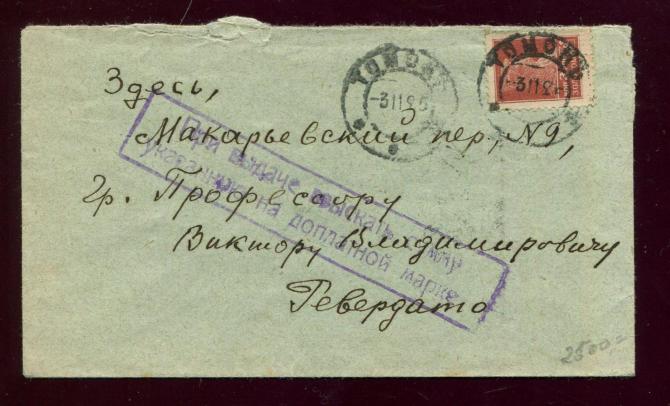 ТОМСКЪ
-3 11 26
ТОМСКЪ
-3 11 2
Здесь,
Макарьевский пер, N9,
Гр. Профессору
Виктору Владимировичу
Ревердато
При выдаче взыскать сумму
указанную на доплатной марке
2500=